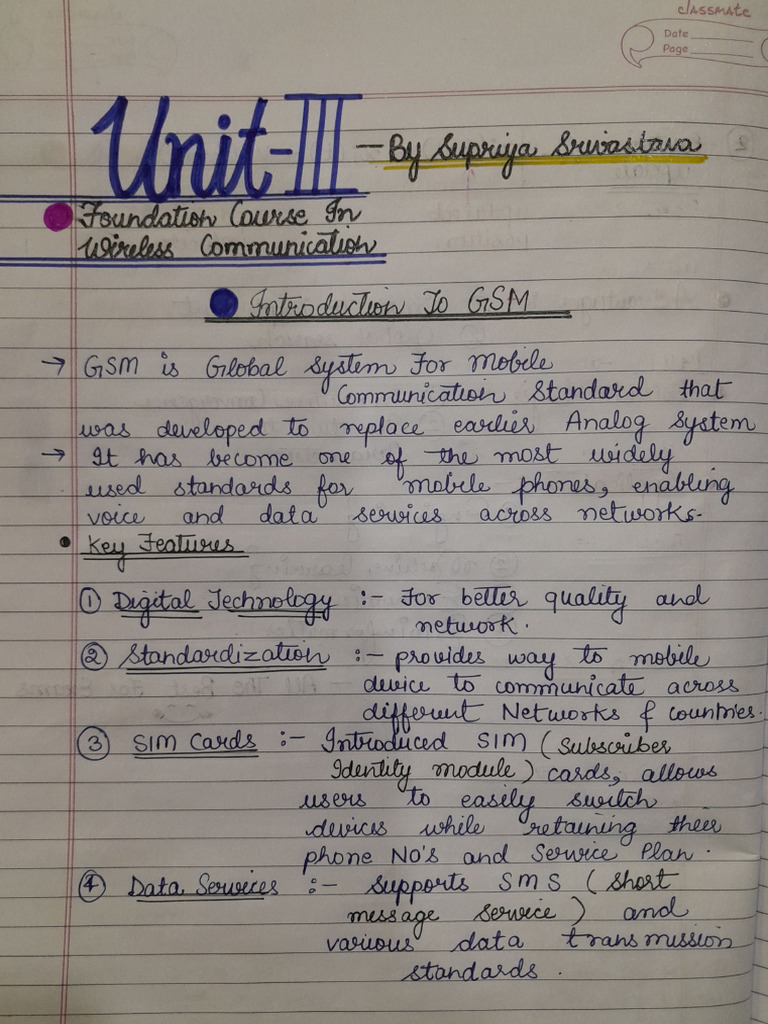 classmate
Date
Page
Unit-III
- By Supriya Srivastava
Foundation Course In
Wireless Communication
Introduction To GSM
→ GSM is Global System For Mobile
Communication Standard that
was developed to replace earlier Analog System
→ It has become one of the most widely
used standards for mobile phones, enabling
voice and data services across networks.
• Key Features
① Digital Technology :- For better quality and
network.
② Standardization :- provides way to mobile
device to communicate across
different Networks & countries.
③ SIM Cards :- Introduced SIM (Subscriber
Identity module) cards, allows
users to easily switch
devices while retaining their
phone NO's and Service Plan.
④ Data Services :- Supports SMS (Short
message Service) and
various data transmission
standards.